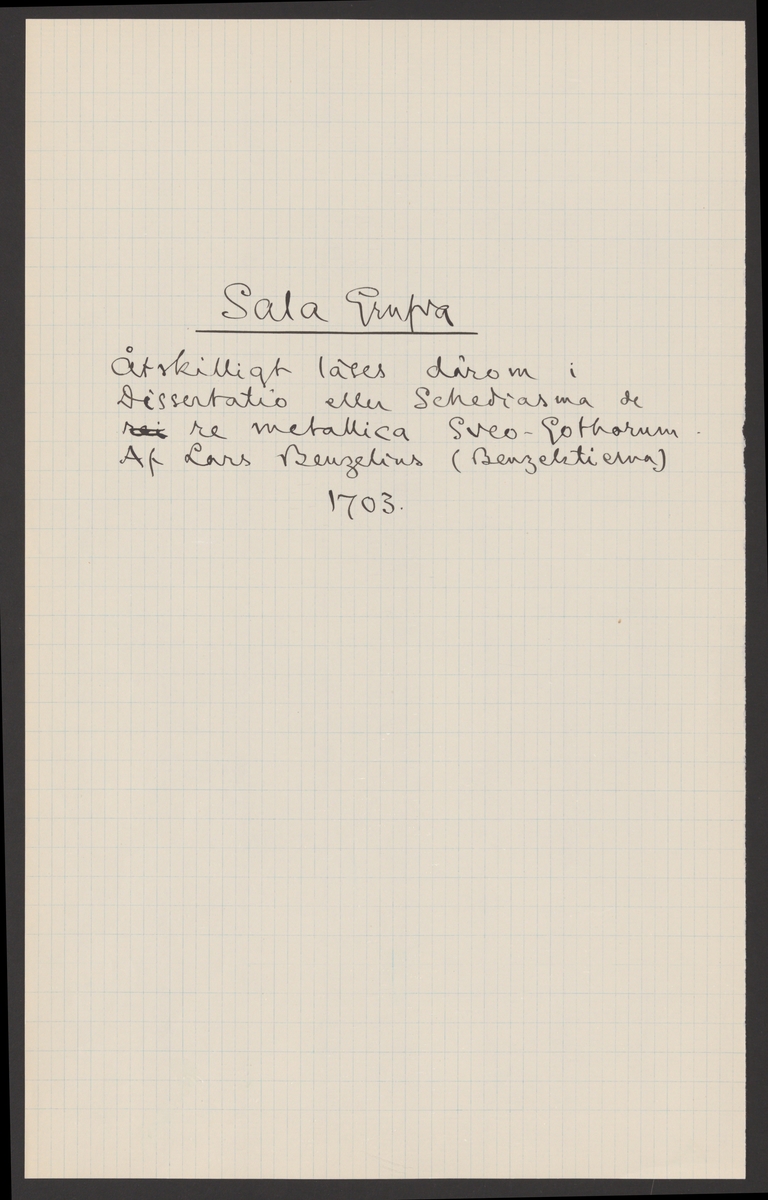 Sala Grufva
Åtskilligt läses därom i
Dissertatio eller Schediasma de
rei re metallica Sveo-Gothorum.
Af Lars Benzelius (Benzelstierna)
1703.